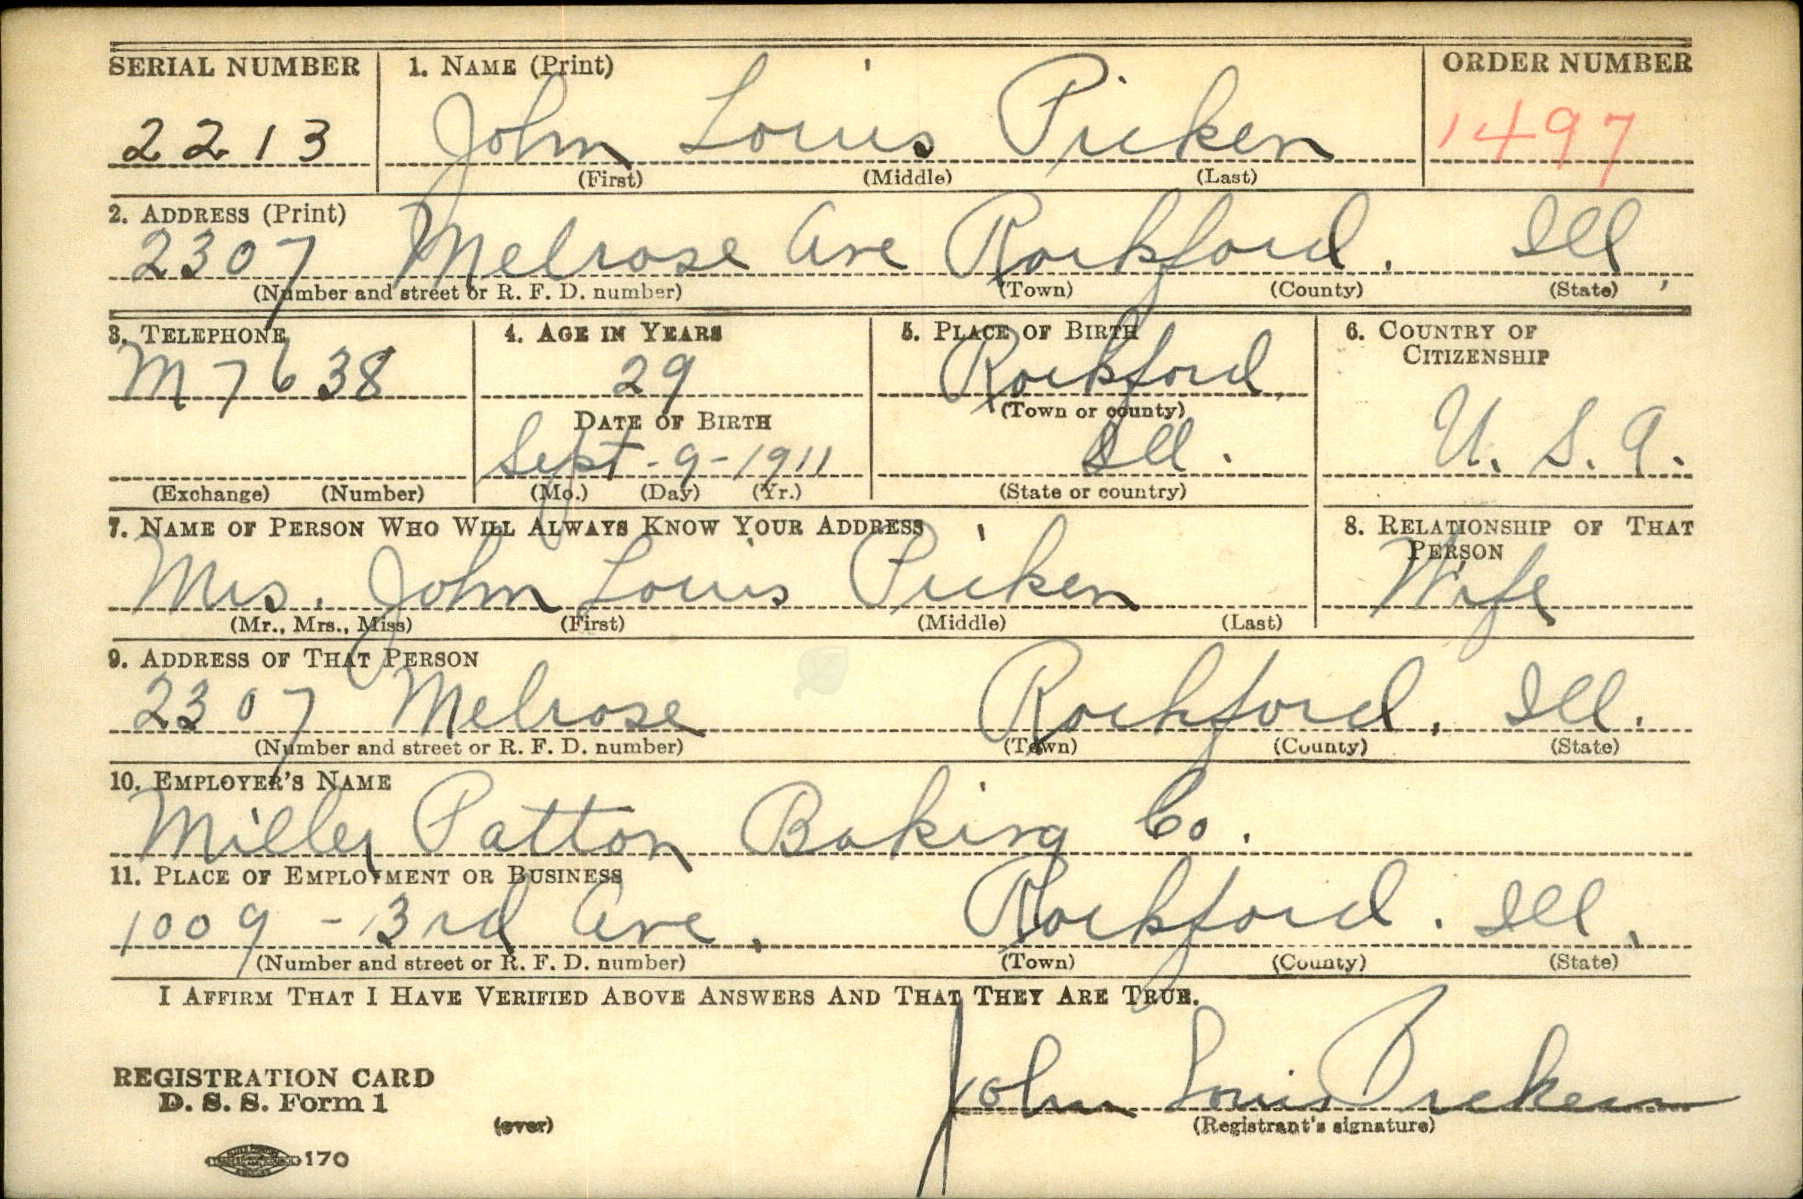 SERIAL NUMBER
1. NAME (Print)
ORDER NUMBER
2213
John Louis Picken
1497
(First) (Middle) (Last)
2. ADDRESS (Print)
2307 Melrose Ave Rockford. Ill,
(Number and street or R. F. D. number) (Town) (County) (State)
3. TELEPHONE
4. AGE IN YEARS
5. PLACE OF BIRTH
6. COUNTRY OF
CITIZENSHIP
M 7638
29
Rockford
(Town or county)
DATE OF BIRTH
Sept-9-1911
Ill.
U. S. A.
(Exchange) (Number)
(Mo.) (Day) (Yr.)
(State or country)
7. NAME OF PERSON WHO WILL ALWAYS KNOW YOUR ADDRESS
8. RELATIONSHIP OF THAT
PERSON
Mrs. John Louis Picken
Wife
(Mr., Mrs., Miss) (First) (Middle) (Last)
9. ADDRESS OF THAT PERSON
2307 Melrose Rockford, Ill.
(Number and street or R. F. D. number) (Town) (County) (State)
10. EMPLOYER'S NAME
Miller Patton Baking Co.
11. PLACE OF EMPLOYMENT OR BUSINESS
1009 - 3rd Ave. Rockford. Ill.
(Number and street or R. F. D. number) (Town) (County) (State)
I AFFIRM THAT I HAVE VERIFIED ABOVE ANSWERS AND THAT THEY ARE TRUE.
John Louis Picken
(Registrant's signature)
REGISTRATION CARD
D. S. S. Form 1
(over)
170